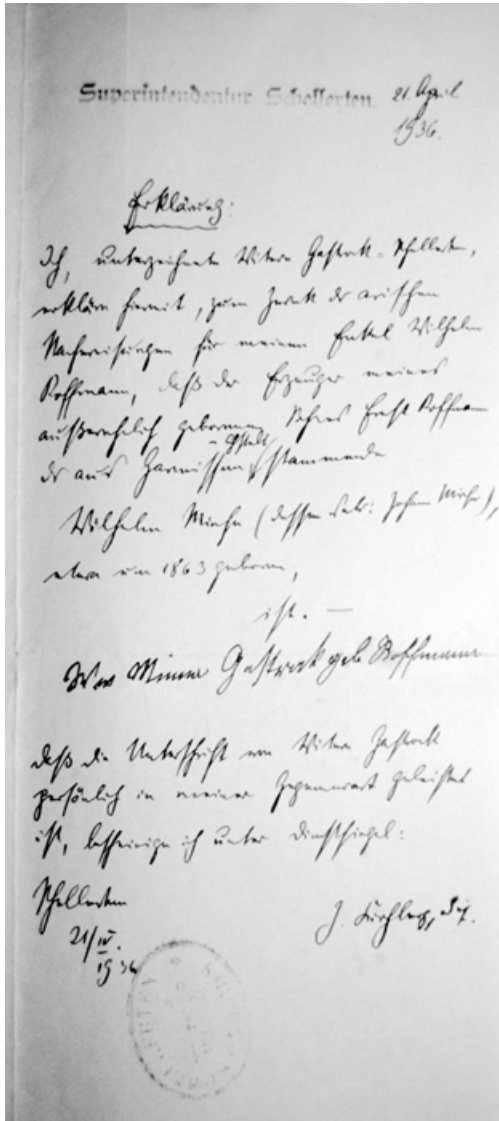 Superintendentur Schellerten. 21. April
1936.
Erklärung:
Ich, unterzeichnete Witwe Gastrock-Schellerten,
erkläre hiermit, zum Zweck der arischen
Nachweisungen für meinen Enkel Wilhelm
Koffmann, daß der Erzeuger meines
außerehelich geborenen Sohnes Ernst Koffmann
der aus Garmissen stammende
Wilhelm (dessen Vater: Johann),
etwa um 1863 geboren,
ist. —
Wwe Minna Gastrock geb Koffmann
daß die Unterschrift von Witwe Gastrock
persönlich in meiner Gegenwart geleistet
ist, bescheinige ich unter Dienstsiegel:
Schellerten
21/IV.
1936